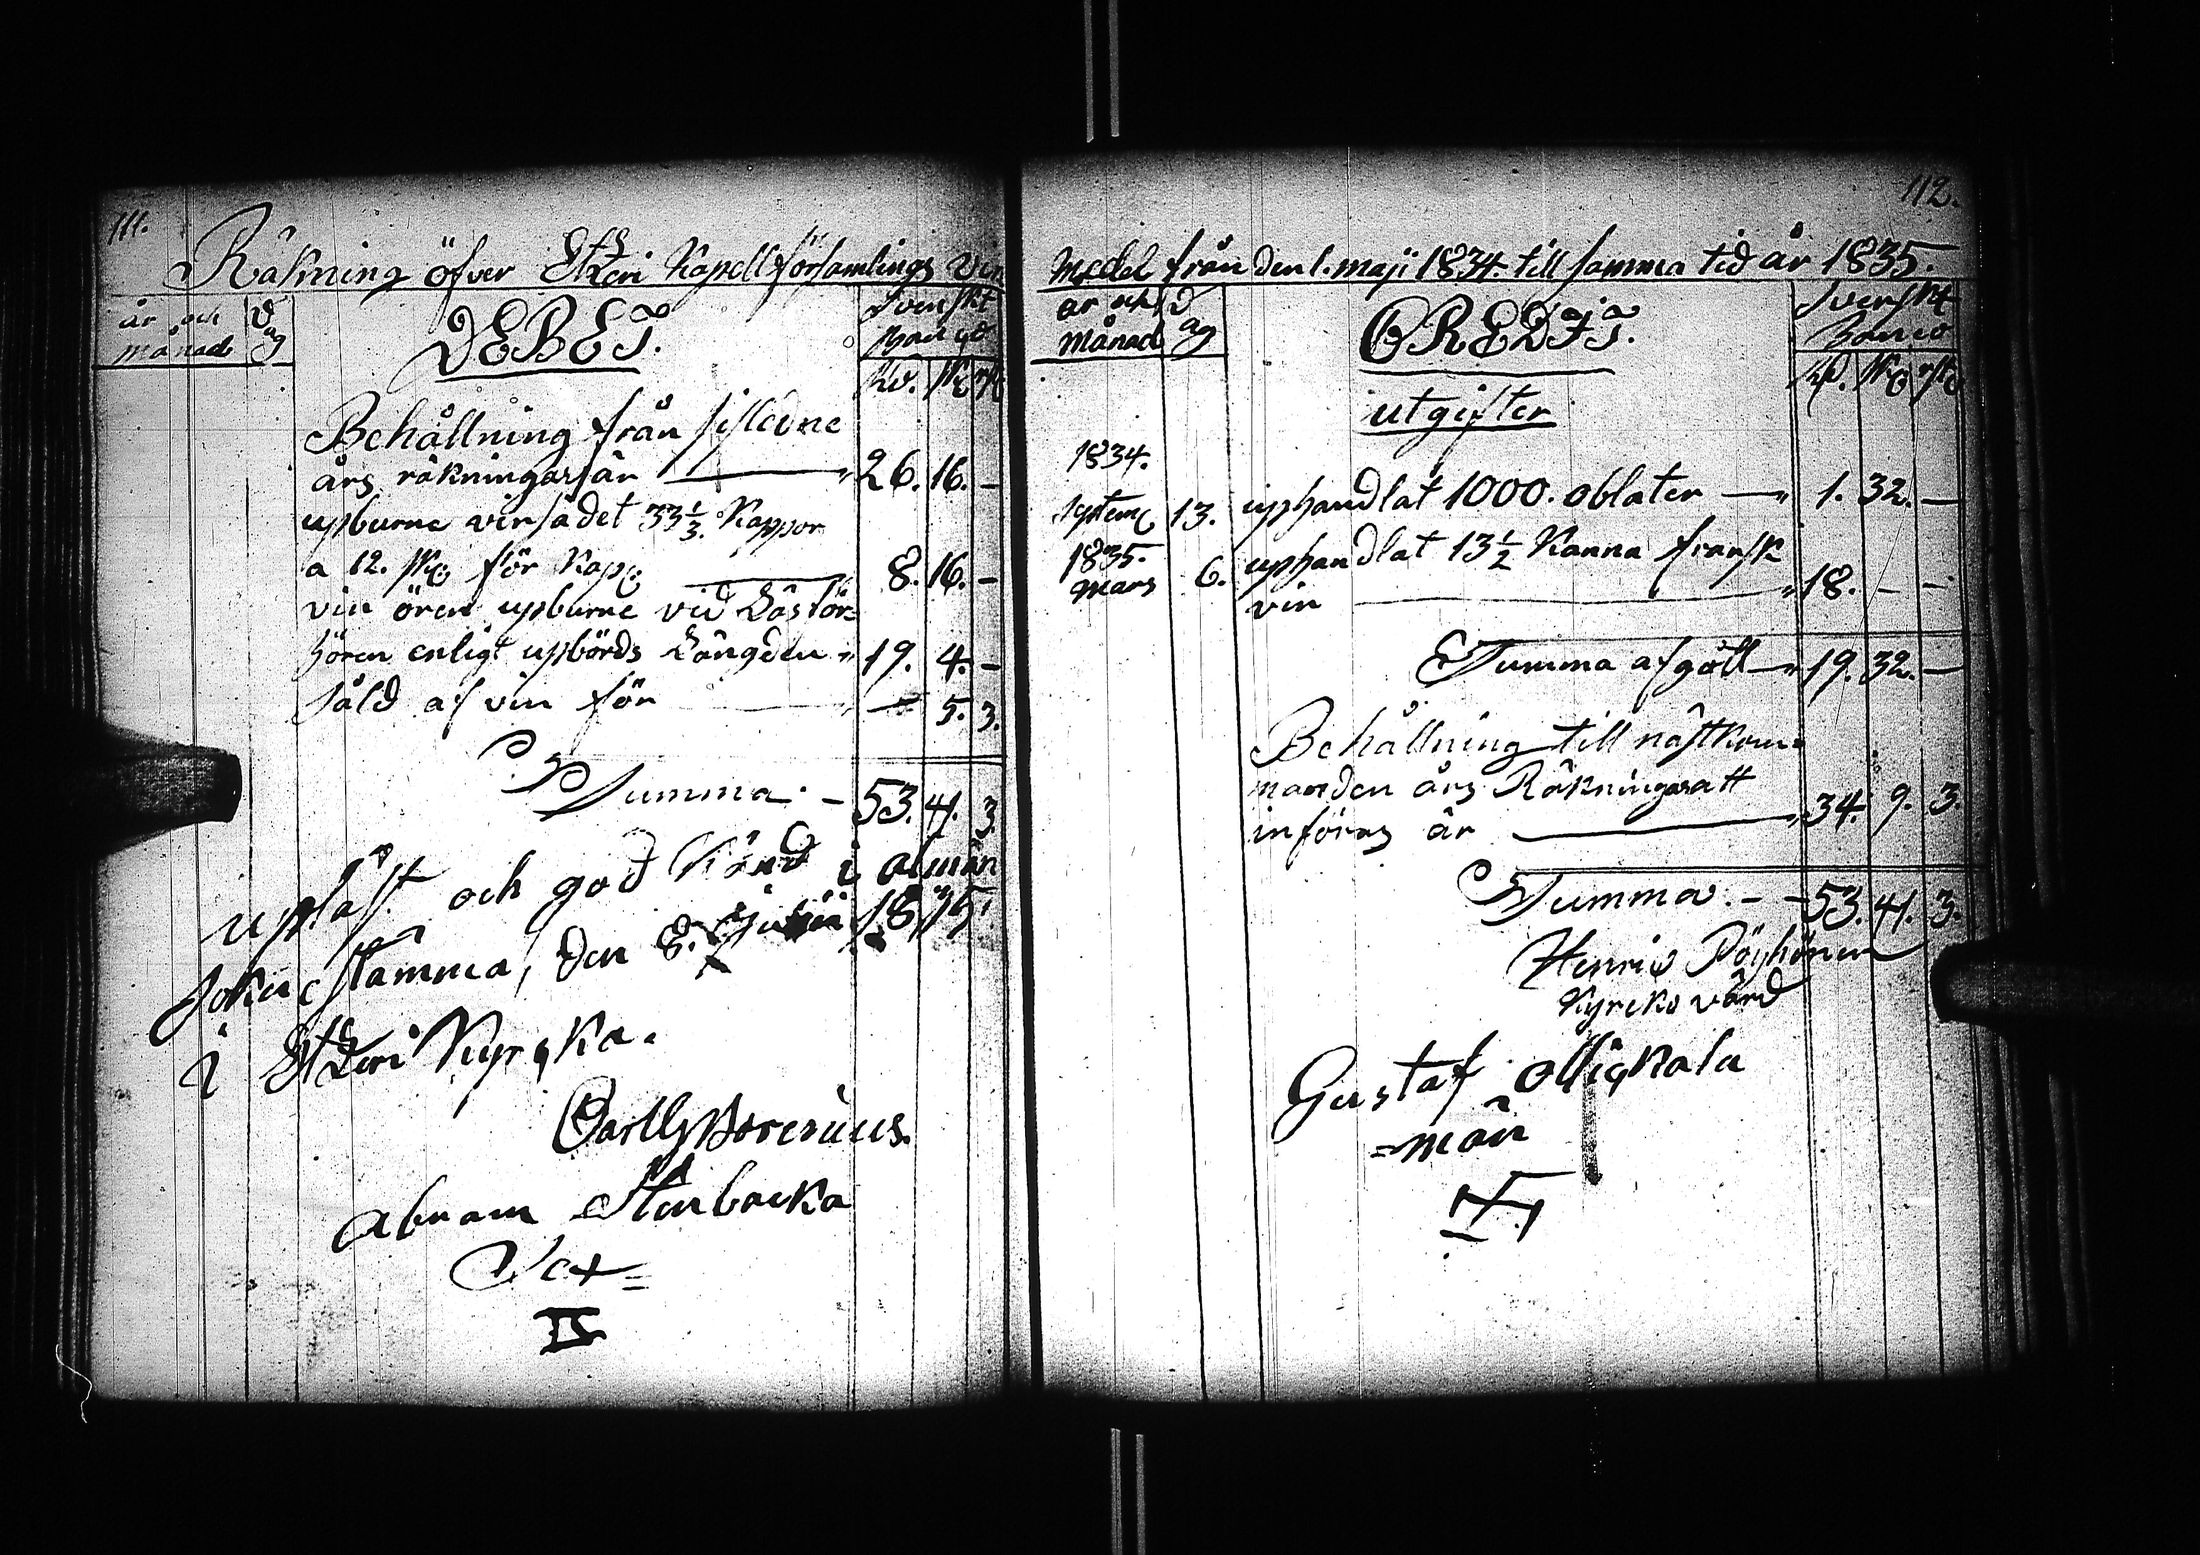 111.
Räkning öfver Etzeri Kapellförsamlings Vin
år och månad
Dag
DEBET.
Svenskt Banco
Rd. sk. rst.
Behållning från sistledne
års räkningar är 26. 16. –
upburne vinsädet 33 1/3. Kappor
a 12. sk. för Kap. 8. 16. –
vin ören upburne vid Läsför=
hören enligt upbörds Längden " 19. 4. –
såld af vin för – 5. 3.
Summa. – 53. 41. 3.
upläst och god känd i almän
sokne stämma, den 8. 1835.
i Etzeri Kyrcka.
Carl G Borenius.
Abram Stenbacka
Sex=
112.
Medel från den 1. maji 1834. till samma tid år 1835.
år och månad
Dag
CREDIT.
Svenskt Banco
Rd. sk. rst.
utgifter
1834.
Septemb 13. upphandlat 1000. oblater — " 1. 32. –
1835.
Mars 6. uphandlat 13 1/2 Kanna fransk
vin " 18. – –
Summa afgått — " 19. 32. –
Behållning till nästkom=
manden års Räkningar att
införas är " 34. 9. 3.
Summa. – – 53. 41. 3.
Henric Pöyhönen
Kyrcko värd
Gustaf Ollickala
=män